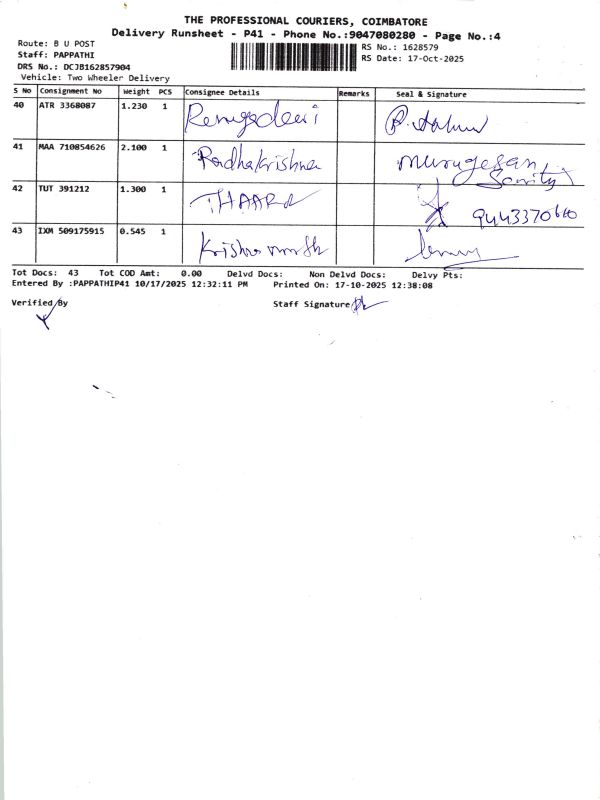 THE PROFESSIONAL COURIERS, COIMBATORE
Delivery Runsheet - P41 - Phone No.:9047080280 - Page No.:4
Route: B U POST
Staff: PAPPATHI
DRS No.: DCJB162857904
Vehicle: Two Wheeler Delivery
RS No.: 1628579
RS Date: 17-Oct-2025
S No Consignment No Weight PCS Consignee Details Remarks Seal & Signature
40 ATR 3368087 1.230 1 Renugadevi
41 MAA 710854626 2.100 1 Radhakrishna murugesan
Scurity
42 TUT 391212 1.300 1 THAARA 9443370660
43 IXM 509175915 0.545 1
Tot Docs: 43 Tot COD Amt: 0.00 Delvd Docs: Non Delvd Docs: Delvy Pts:
Entered By :PAPPATHIP41 10/17/2025 12:32:11 PM Printed On: 17-10-2025 12:38:08
Verified By Staff Signature